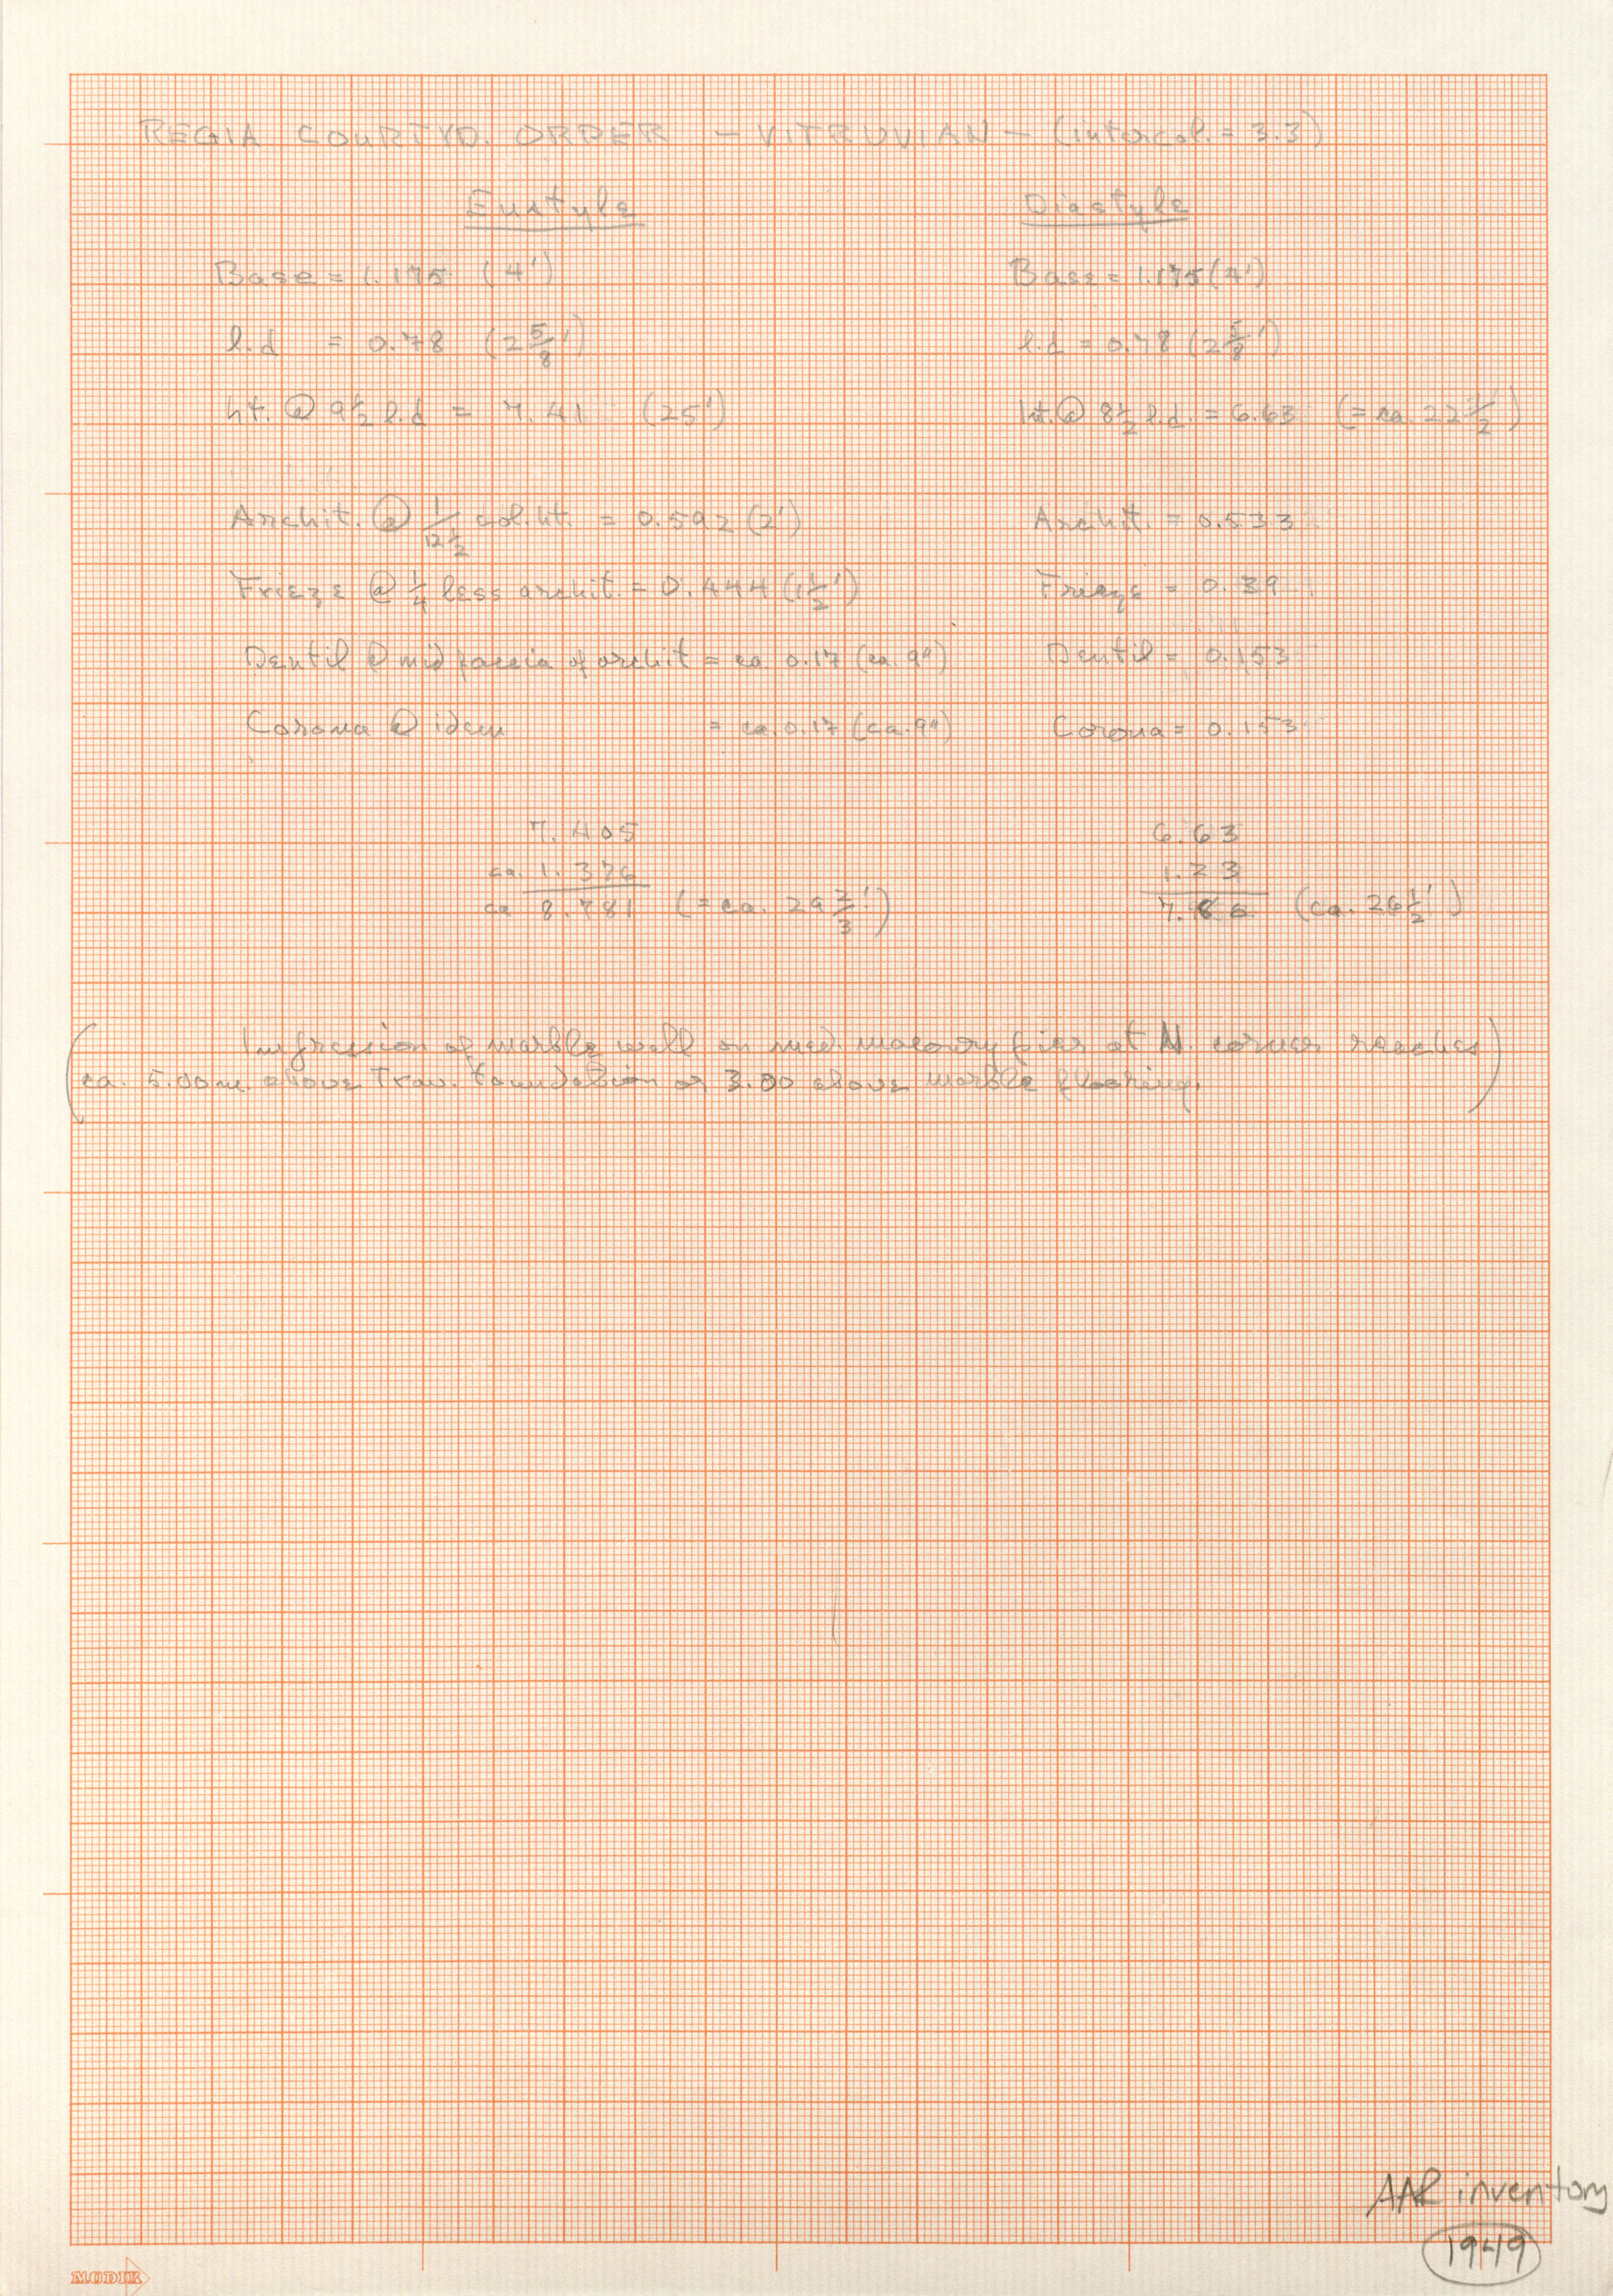 REGIA COURTYD. ORDER – VITRUVIAN – (intercol. = 3.3)
Eustyle
Base = 1.175 (4')
l.d = 0.78 (2 5/8')
ht. @ 9 1/2 l.d = 7.41 (25')
Archit. @ 1/12 1/2 col. ht. = 0.592 (2')
Frieze @ 1/4 less archit. = 0.444 (1 1/2')
Dentil @ mid fascia of archit = ca 0.17 (ca. 9")
Corona @ idem = ca. 0.17 (ca. 9")
7.405
ca. 1.376
ca 8.781 (= ca. 29 2/3')
Diastyle
Base = 1.175 (4')
l.d = 0.78 (2 5/8')
ht. @ 8 1/2 l.d. = 6.63 (= ca. 22 1/2')
Archit. = 0.533
Frieze = 0.39
Dentil = 0.153
Corona = 0.153
6.63
1.23
7.86 (ca. 26 1/2')
(Impression of marble wall on med. masonry pier at N. corner reaches
ca. 5.00m above Trav. foundation or 3.80 above marble flooring.)
AAR inventory
1949
MODIR